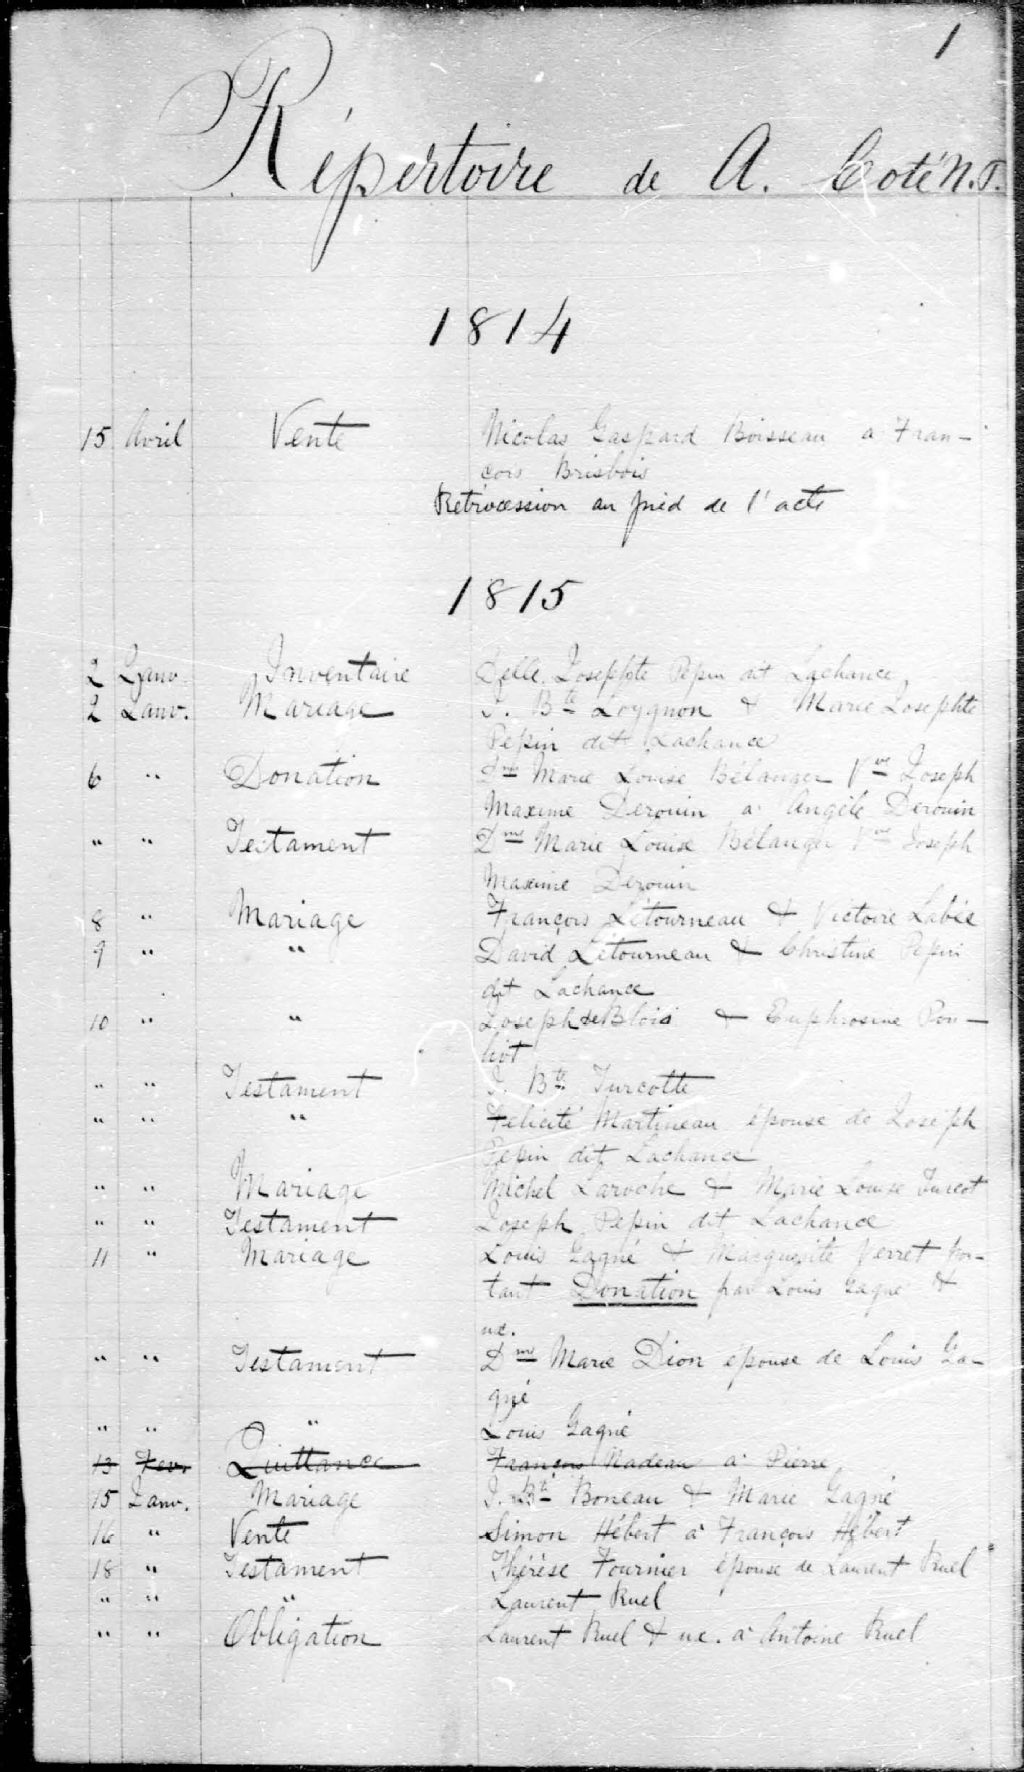 1
Répertoire de A. Coté N.P.
1814
15 Avril Vente Nicolas Gaspard Boisseau à Fran-
çois Brisbois
Rétrocession au pied de l'acte
1815
2 Janv. Inventaire Delle. Josephte Pepin dit Lachance
2 Janv. Mariage J. Bte Loygnon & Marie Josephte
Pepin dit Lachance
6 " Donation Dme Marie Louise Bélanger Vve Joseph
Maxime Derouin à Angèle Derouin
" " Testament Dme Marie Louise Bélanger Vve Joseph
Maxime Derouin
8 " Mariage François Létourneau & Victoire Labée
9 " " David Létourneau & Christine Pepin
dit Lachance
10 " " Joseph de Blois & Euphrosine Pou-
liot
" " Testament J. Bte Turcotte
" " " Félicité Martineau épouse de Joseph
Pepin dit Lachance
" " Mariage Michel Laroche & Marie Louise Turcot
" " Testament Joseph Pepin dit Lachance
11 " Mariage Louis Gagné & Marguerite Verret por-
tant Donation par Louis Gagné &
ux.
" " Testament Dme Marie Dion épouse de Louis Ga-
gné
" " " Louis Gagné
13 Fev. Quittance François Nadeau à Pierre
15 Janv. Mariage J. Bte Boneau & Marie Gagné
16 " Vente Simon Hébert à François Hébert
18 " Testament Thérèse Fournier épouse de Laurent Ruel
" " " Laurent Ruel
" " Obligation Laurent Ruel & ux. à Antoine Ruel